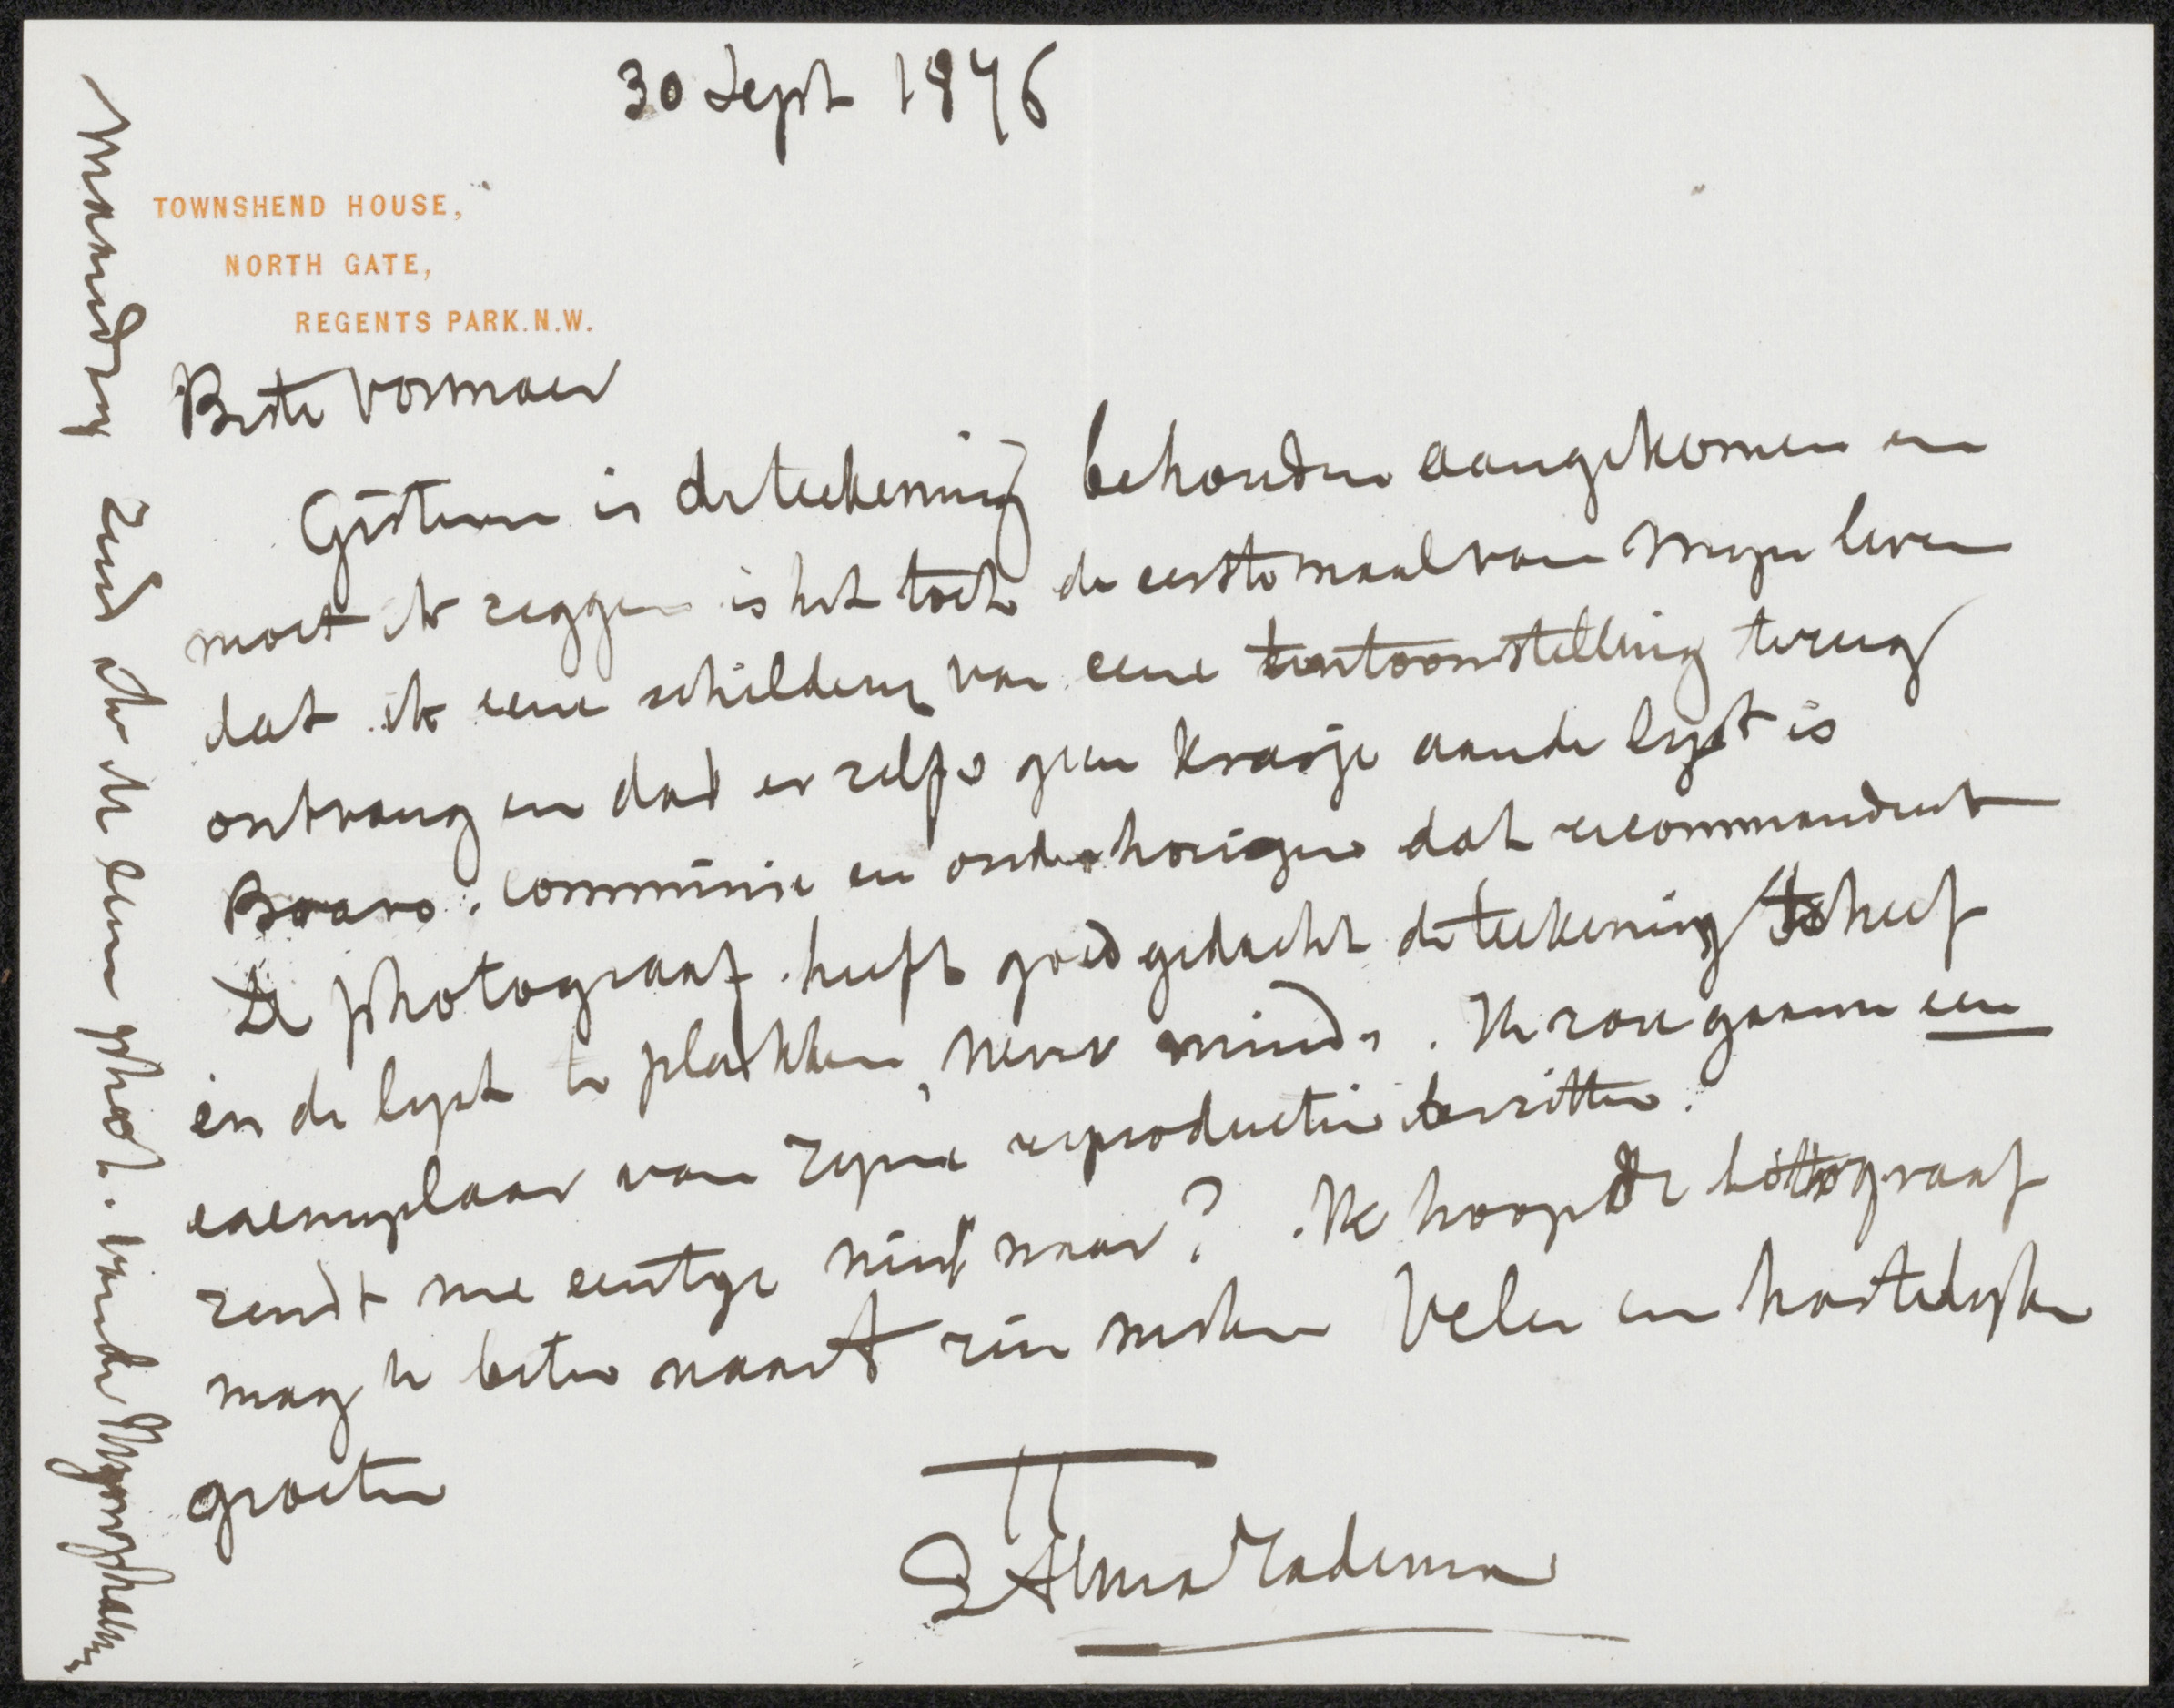 30 Sept 1876
TOWNSHEND HOUSE,
NORTH GATE,
REGENTS PARK. N.W.
Beste Vosmaer
Gisteren is de teekening behouden aangekomen en
moet ik zeggen is het toch de eerste maal van myn leven
dat ik eene schildery van eene tentoonstelling terug
ontvang en dat er zelfs geen krasje aan de lyst is
Bravo. commissie en onderhoorigen dat recommandeert
De photograaf heeft goed gedacht de teekening scheef
in de lyst te plakken, never mind. Ik zou gaarne een
exemplaar van zyne reproductie bezitten.
zendt me eentge niet waar? Ik hoop de lithograaf
mag te beter naast zin maken Vele en hartelyke
groeten
L Alma Tadema
Maandag zend ik U een phot. van de